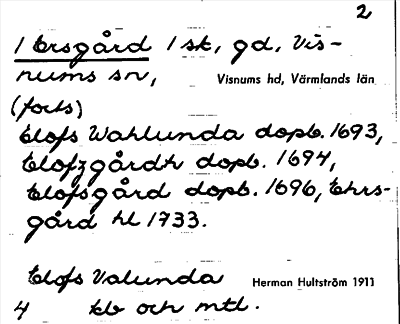 2
1 Ersgård 1 sk, gd, Vis-
nums sn, Visnums hd, Värmlands län
(forts)
Elofs Wahlunda dopb. 1693,
Elofzgårdh dopb. 1694,
Elofsgård dopb. 1696, Ehrs-
gård hl 1733.
Elofs Valunda Herman Hultström 1911
4 kb och mtl.